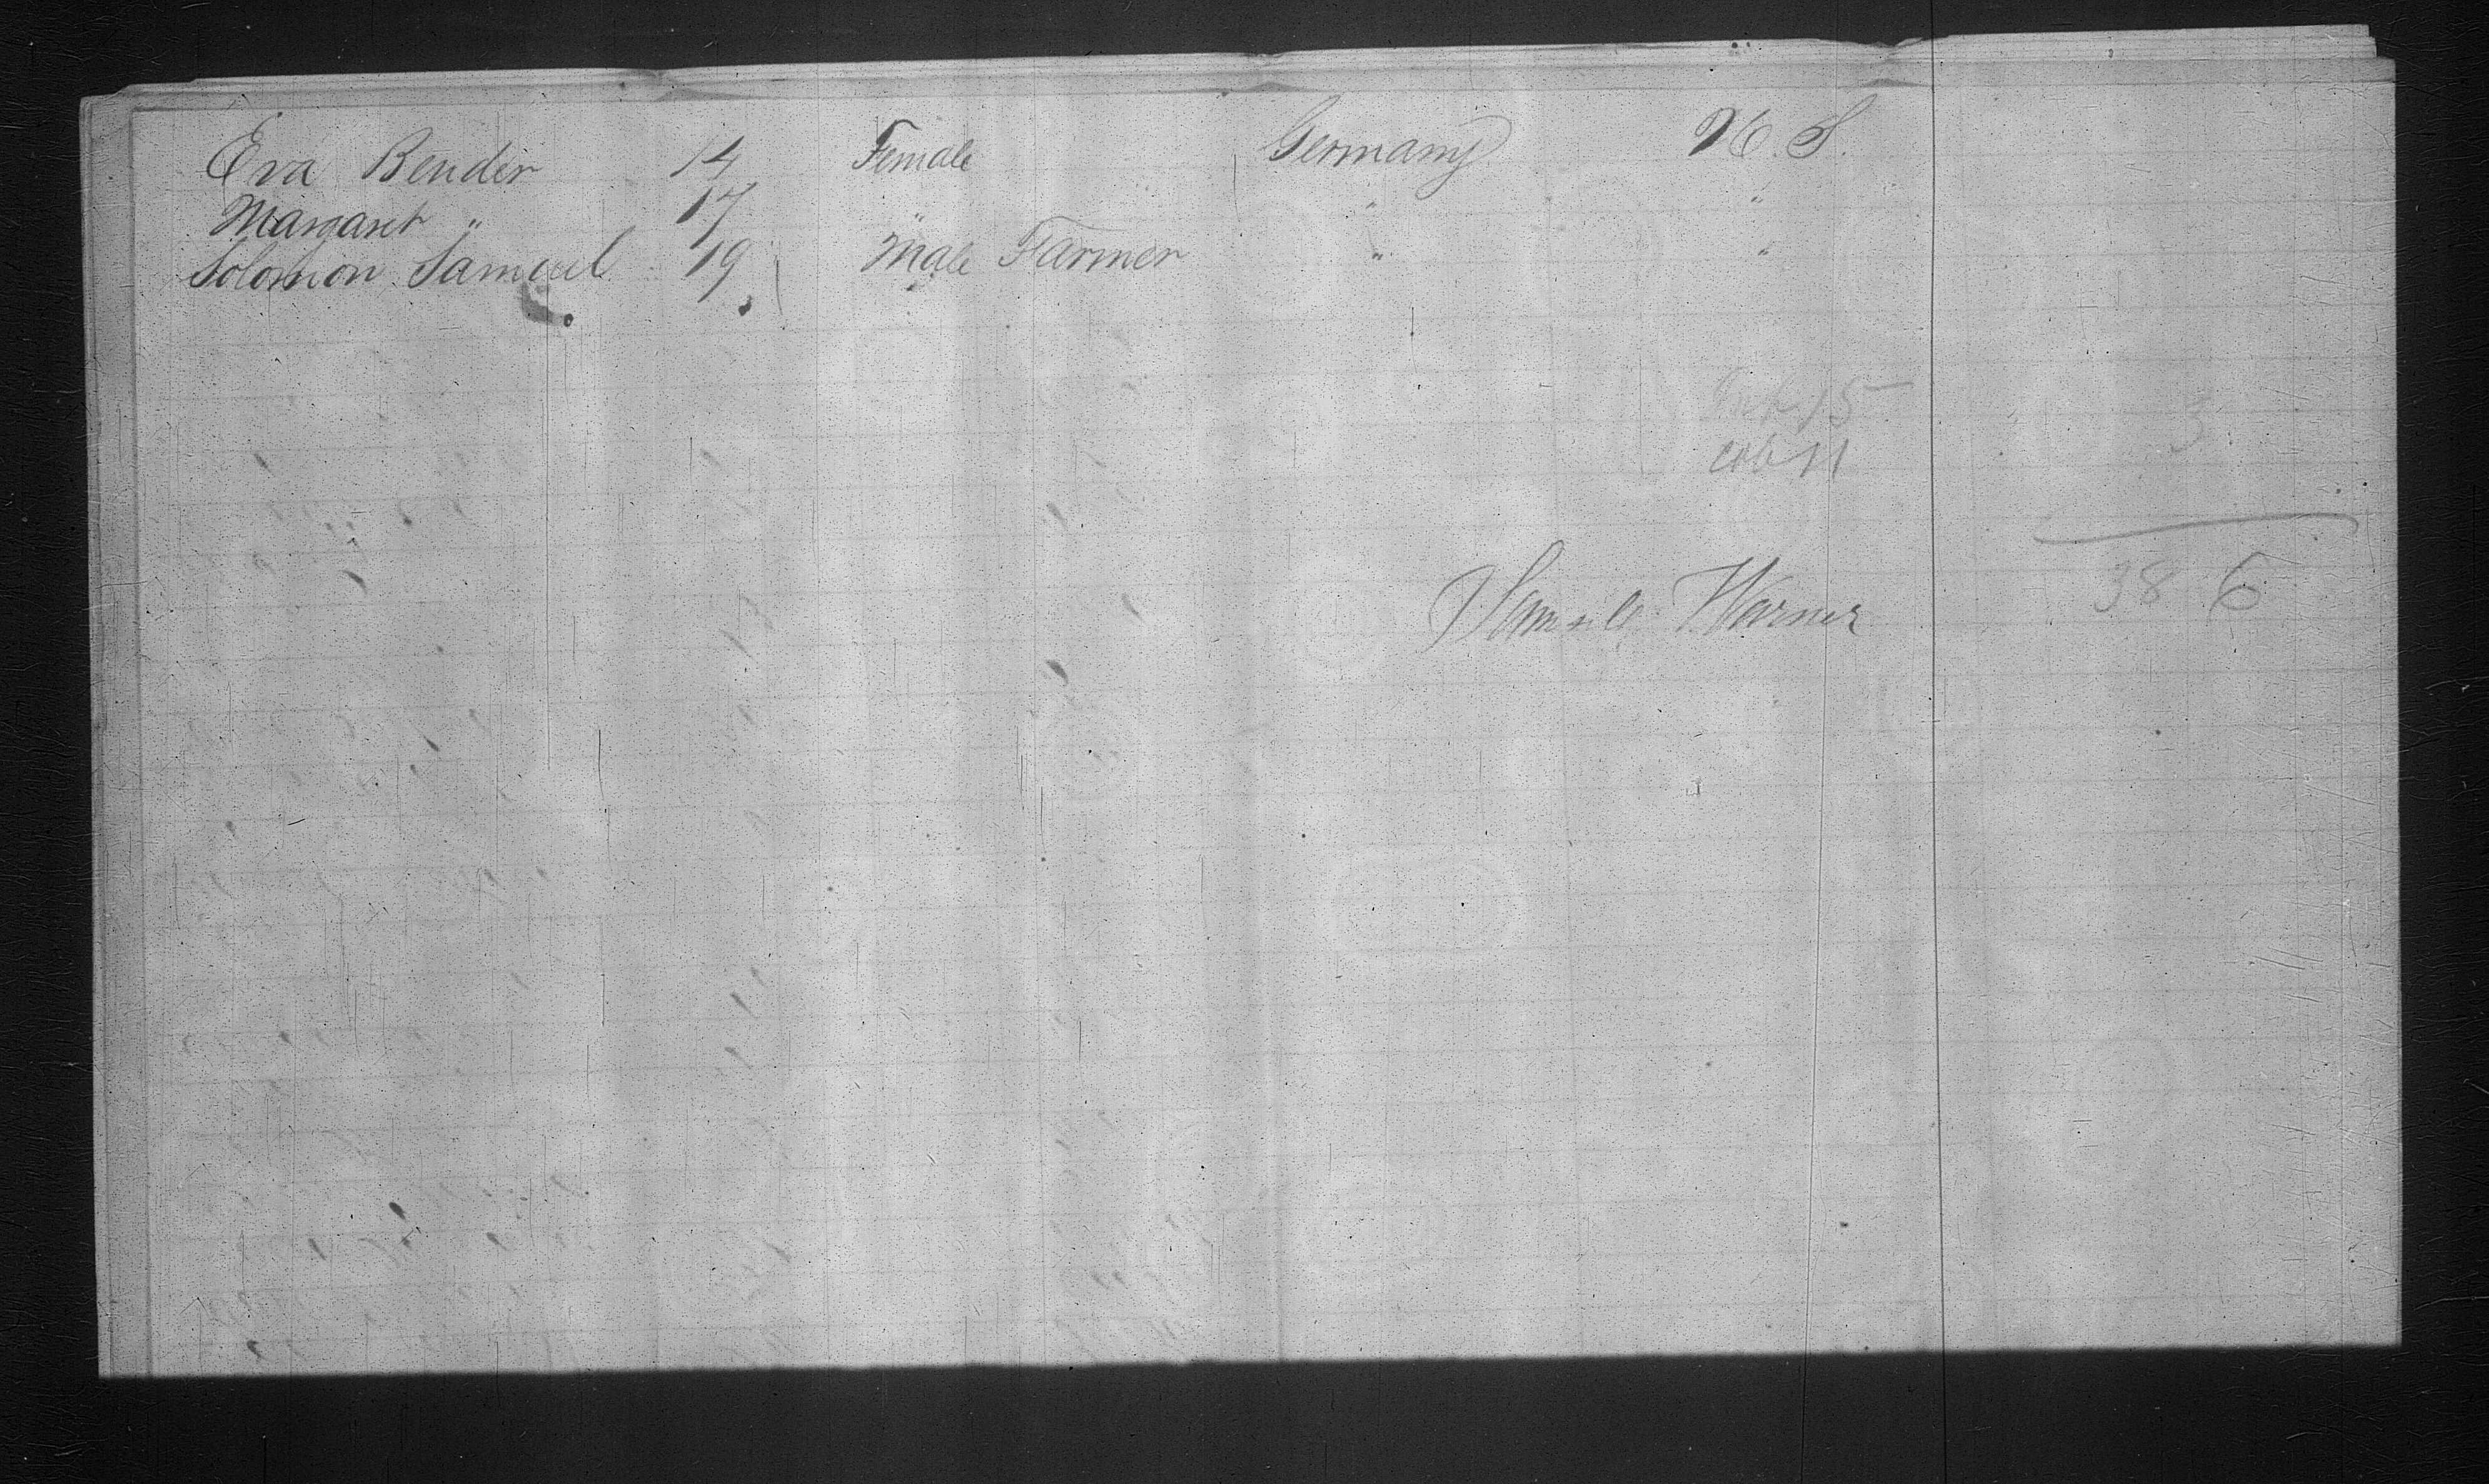 Eva Bender 14 Female Germany U. S.
Margaret " 17 " " "
Solomon Samuel 19 Male Farmer " "
15
3
cab 11
38 6
Warner